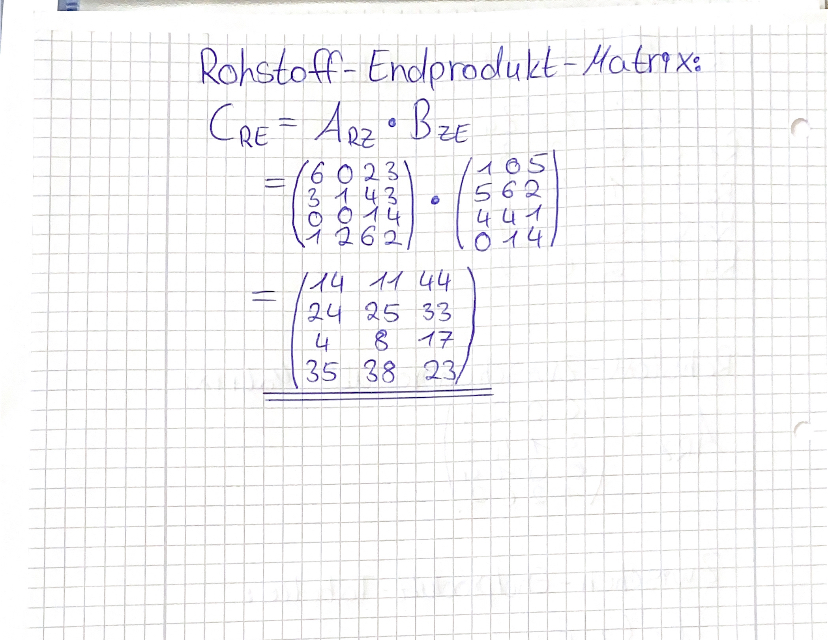 Rohstoff-Endprodukt-Matrix:
C_RE = A_RZ • B_ZE
= (6 0 2 3) • (1 0 5)
(3 1 4 3) (5 6 2)
(0 0 1 4) (4 4 1)
(1 2 6 2) (0 1 4)
= (14 11 44)
(24 25 33)
(4 8 17)
(35 38 23)